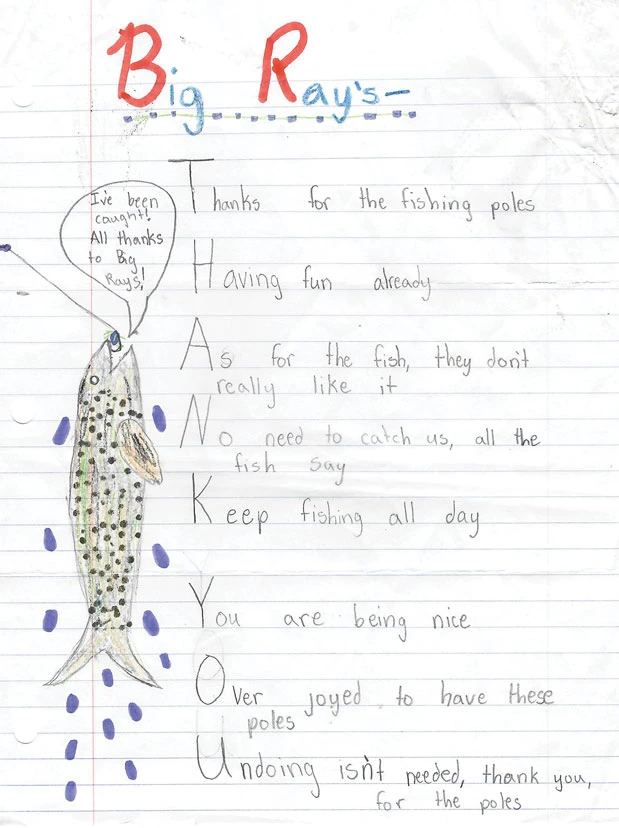 Big Ray's-
I've been
caught!
All thanks
to Big
Rays!
Thanks for the fishing poles
Having fun already
As for the fish, they don't
really like it
No need to catch us, all the
fish say
Keep fishing all day
You are being nice
Over joyed to have these
poles
Undoing isn't needed, thank you,
for the poles